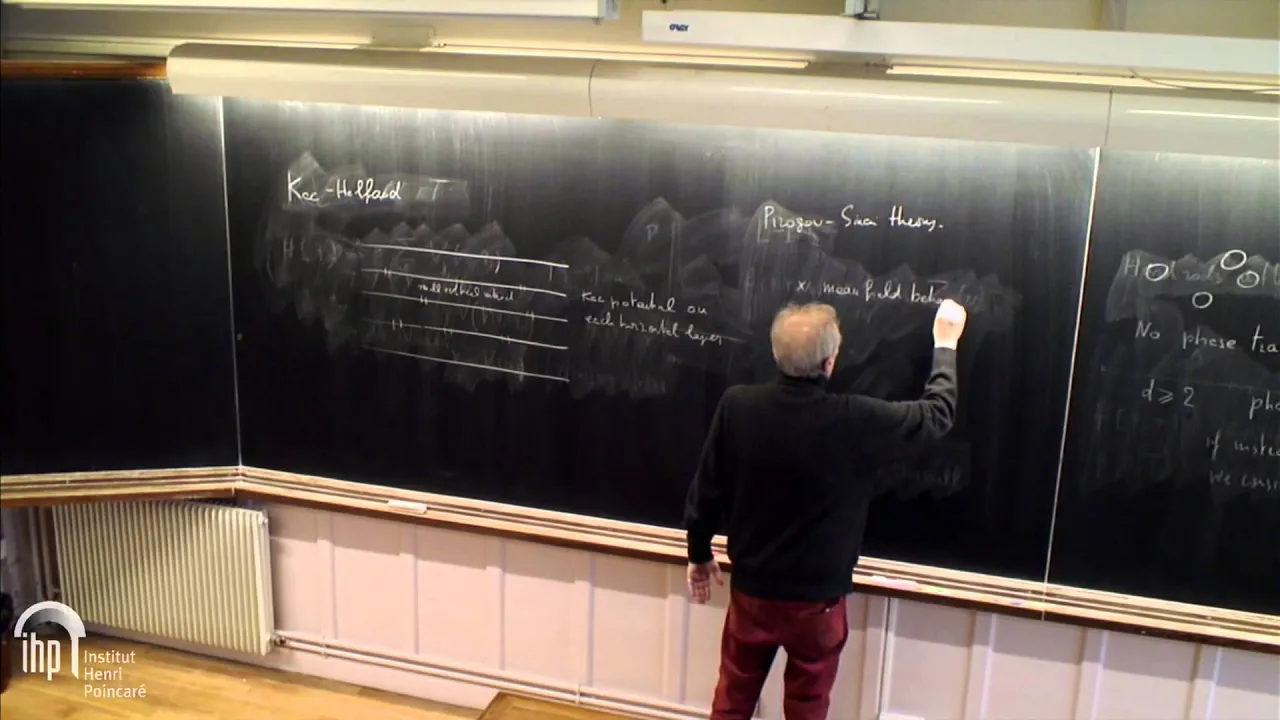 Kac-Helfand T
H(
small vertical interact
Kac potential on
each horizontal layer
P
Pirogov-Sinai theory.
x mean field beha
H
No phase tra
d ≥ 2 pha
if instea
we consi
ihp Institut
Henri
Poincaré